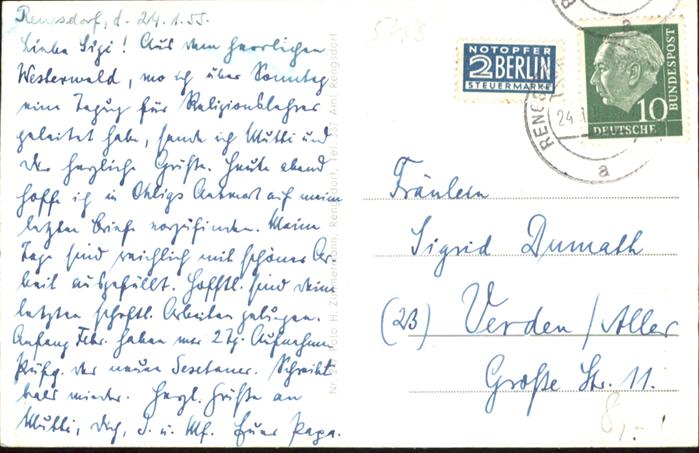 Rengsdorf, d. 24.1.55.
Liebe Sigi! Aus dem herrlichen
Westerwald, wo ich über Sonntag
eine Tagug für Religionslehrer
geleitet habe, sende ich Mutti und
Dir herzliche Grüße. Heute abend
hoffe ich in Ohligs Antwort auf meine
letzten Briefe vorzufinden. Meine
Tage sind reichlich mit schöner Ar-
beit ausgefüllt. Hofftl. sind deine
letzten schriftl. Arbeiten gelungen.
Anfang Febr. haben wir 2tg. Aufnahme-
prüfg. der neuen Sextaner. Schreibt
bald wieder. Herzl. Grüße an
Mutti, Dich, u. Euer Papa.
Rengsdorf
NOTOPFER
2 BERLIN
STEUERMARKE
10
DEUTSCHE
BUNDESPOST
RENGS
24.1
a
Fräulein
Sigrid Dumath
(23) Verden / Aller
Große Str. 11.
8,-